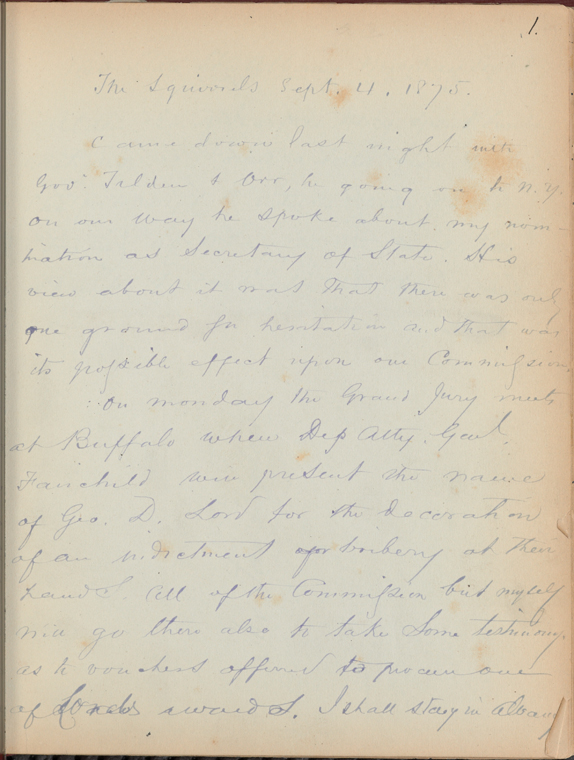 1.
The Squirrels Sept. 4. 1875.
Came down last night with
Gov. Tilden & Orr, he going on to N.Y.
On our way he spoke about my nom-
ination as Secretary of State. His
view about it was that there was only
one ground for hesitation and that was
its possible effect upon our Commission.
On Monday the Grand Jury meets
at Buffalo when Dep Atty. Genl.
Fairchild will present the name
of Geo. D. Lord for the decoration
of an indictment for bribery at their
hands. All of the Commission but myself
will go there also to take some testimony
as to vouchers offered to procure one
of Lords awards. I shall stay in Albany